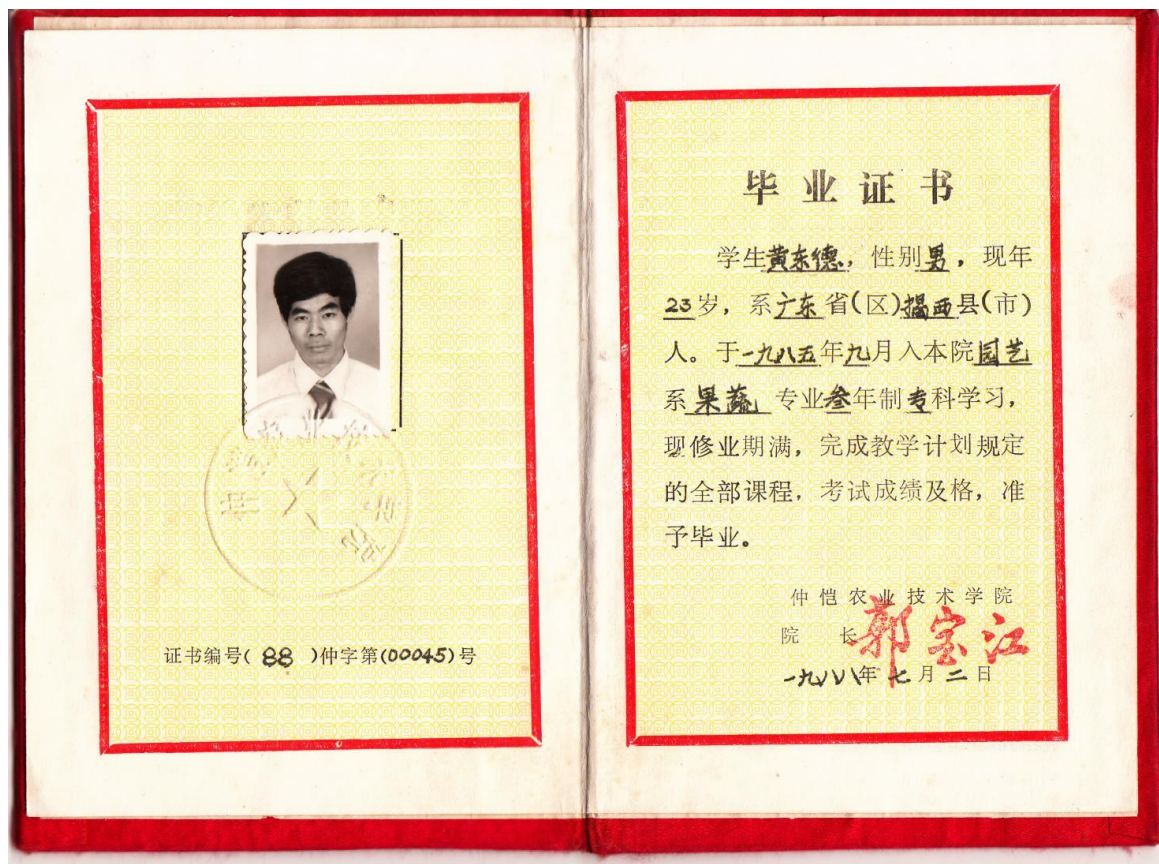 证书编号( 88 )仲字第(00045)号
毕业证书
学生黄东德,性别男,现年
23岁,系广东省(区)揭西县(市)
人。于一九八五年九月入本院园艺
系果蔬 专业叁年制专科学习,
现修业期满,完成教学计划规定
的全部课程,考试成绩及格,准
予毕业。
仲恺农业技术学院
院 长 郭宝江
一九八八年七月二日